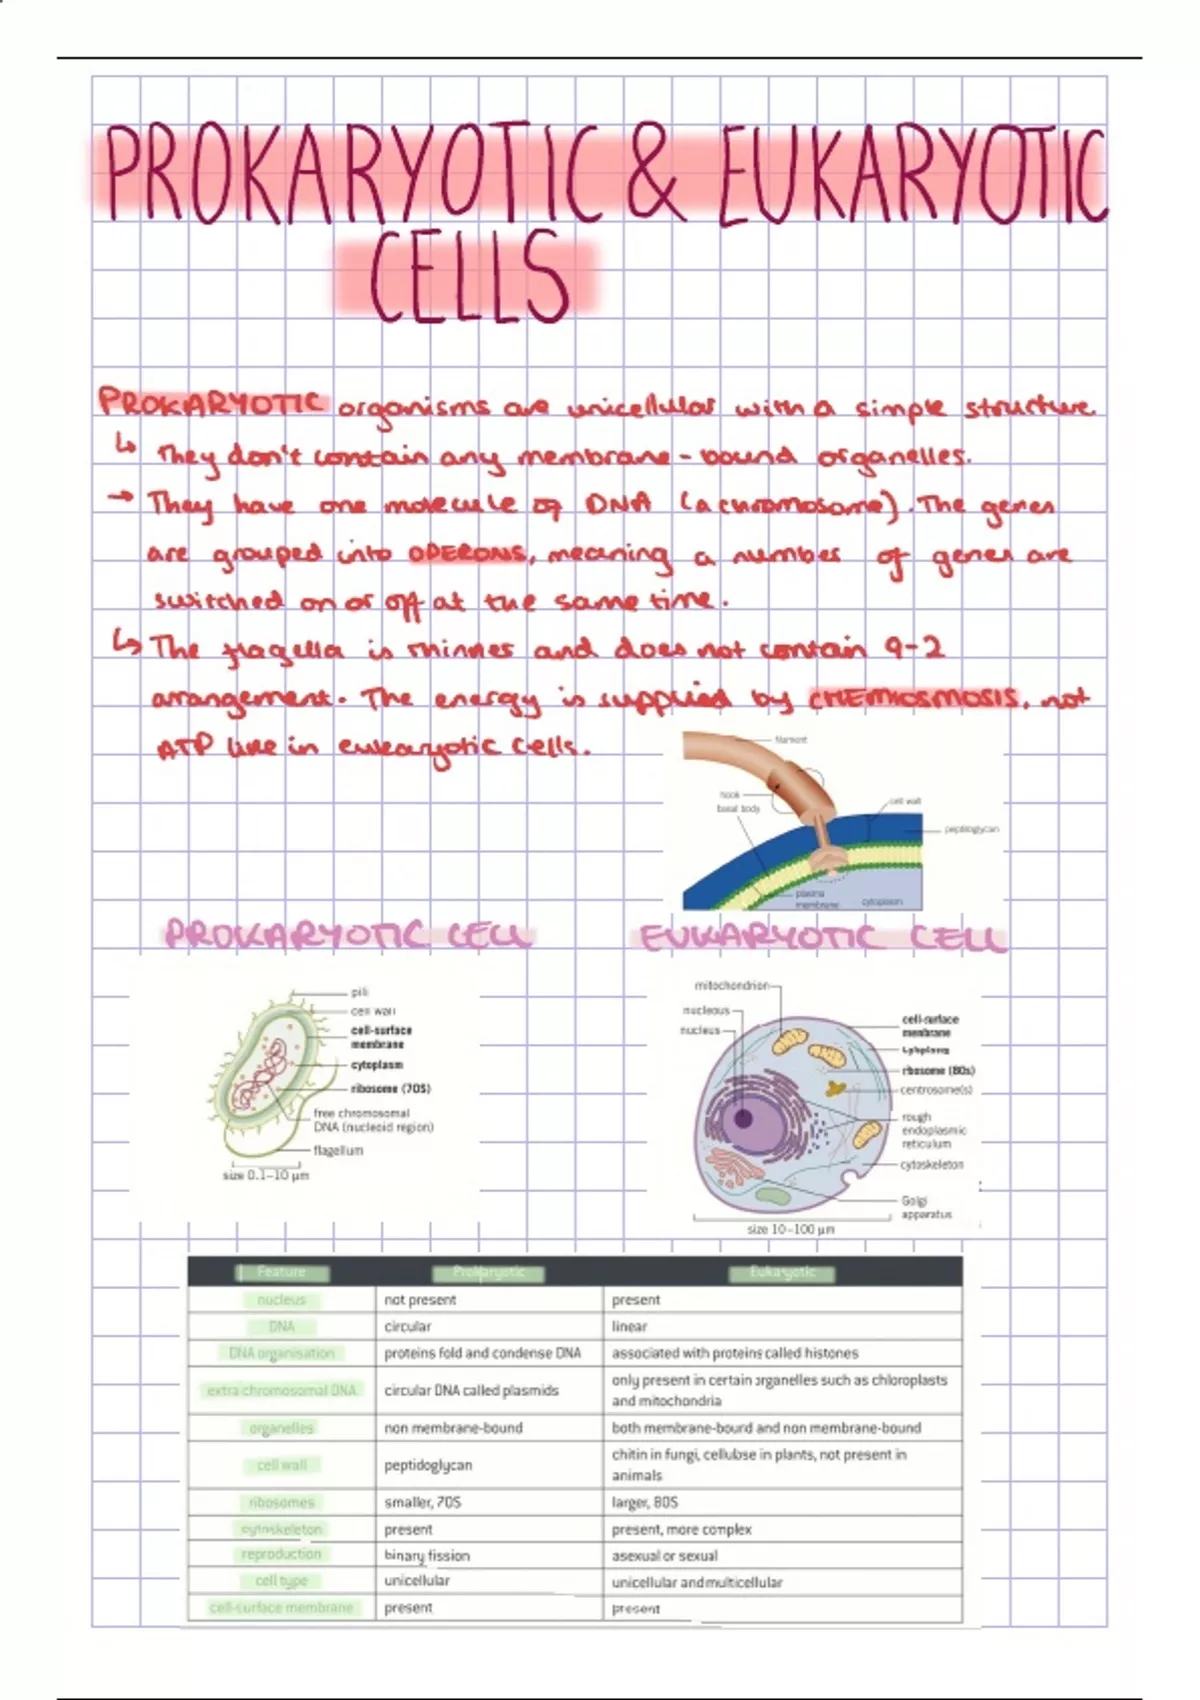 PROKARYOTIC & EUKARYOTIC
CELLS
PROKARYOTIC organisms are unicellular with a simple structure.
↳ They don't contain any membrane-bound organelles.
→ They have one molecule of DNA (a chromosome). The genes
are grouped into OPERONS, meaning a number of genes are
switched on or off at the same time.
↳ The flagella is thinner and does not contain 9-2
arrangement. The energy is supplied by CHEMIOSMOSIS, not
ATP like in eukaryotic cells.
filament
hook
basal body
cell wall
peptidoglycan
plasma
membrane
cytoplasm
PROKARYOTIC CELL
EUKARYOTIC CELL
pili
cell wall
cell-surface
membrane
cytoplasm
ribosome (70S)
free chromosomal
DNA (nucleoid region)
flagellum
size 0.1–10 µm
mitochondrion
nucleous
nucleus
cell-surface
membrane
ribosome (80s)
centrosome(s)
rough
endoplasmic
reticulum
cytoskeleton
Golgi
apparatus
size 10–100 µm
Feature Prokaryotic Eukaryotic
nucleus not present present
DNA circular linear
DNA organisation proteins fold and condense DNA associated with proteins called histones
extra chromosomal DNA circular DNA called plasmids only present in certain organelles such as chloroplasts
and mitochondria
organelles non membrane-bound both membrane-bound and non membrane-bound
cell wall peptidoglycan chitin in fungi, cellulose in plants, not present in
animals
ribosomes smaller, 70S larger, 80S
cytoskeleton present present, more complex
reproduction binary fission asexual or sexual
cell type unicellular unicellular and multicellular
cell-surface membrane present present